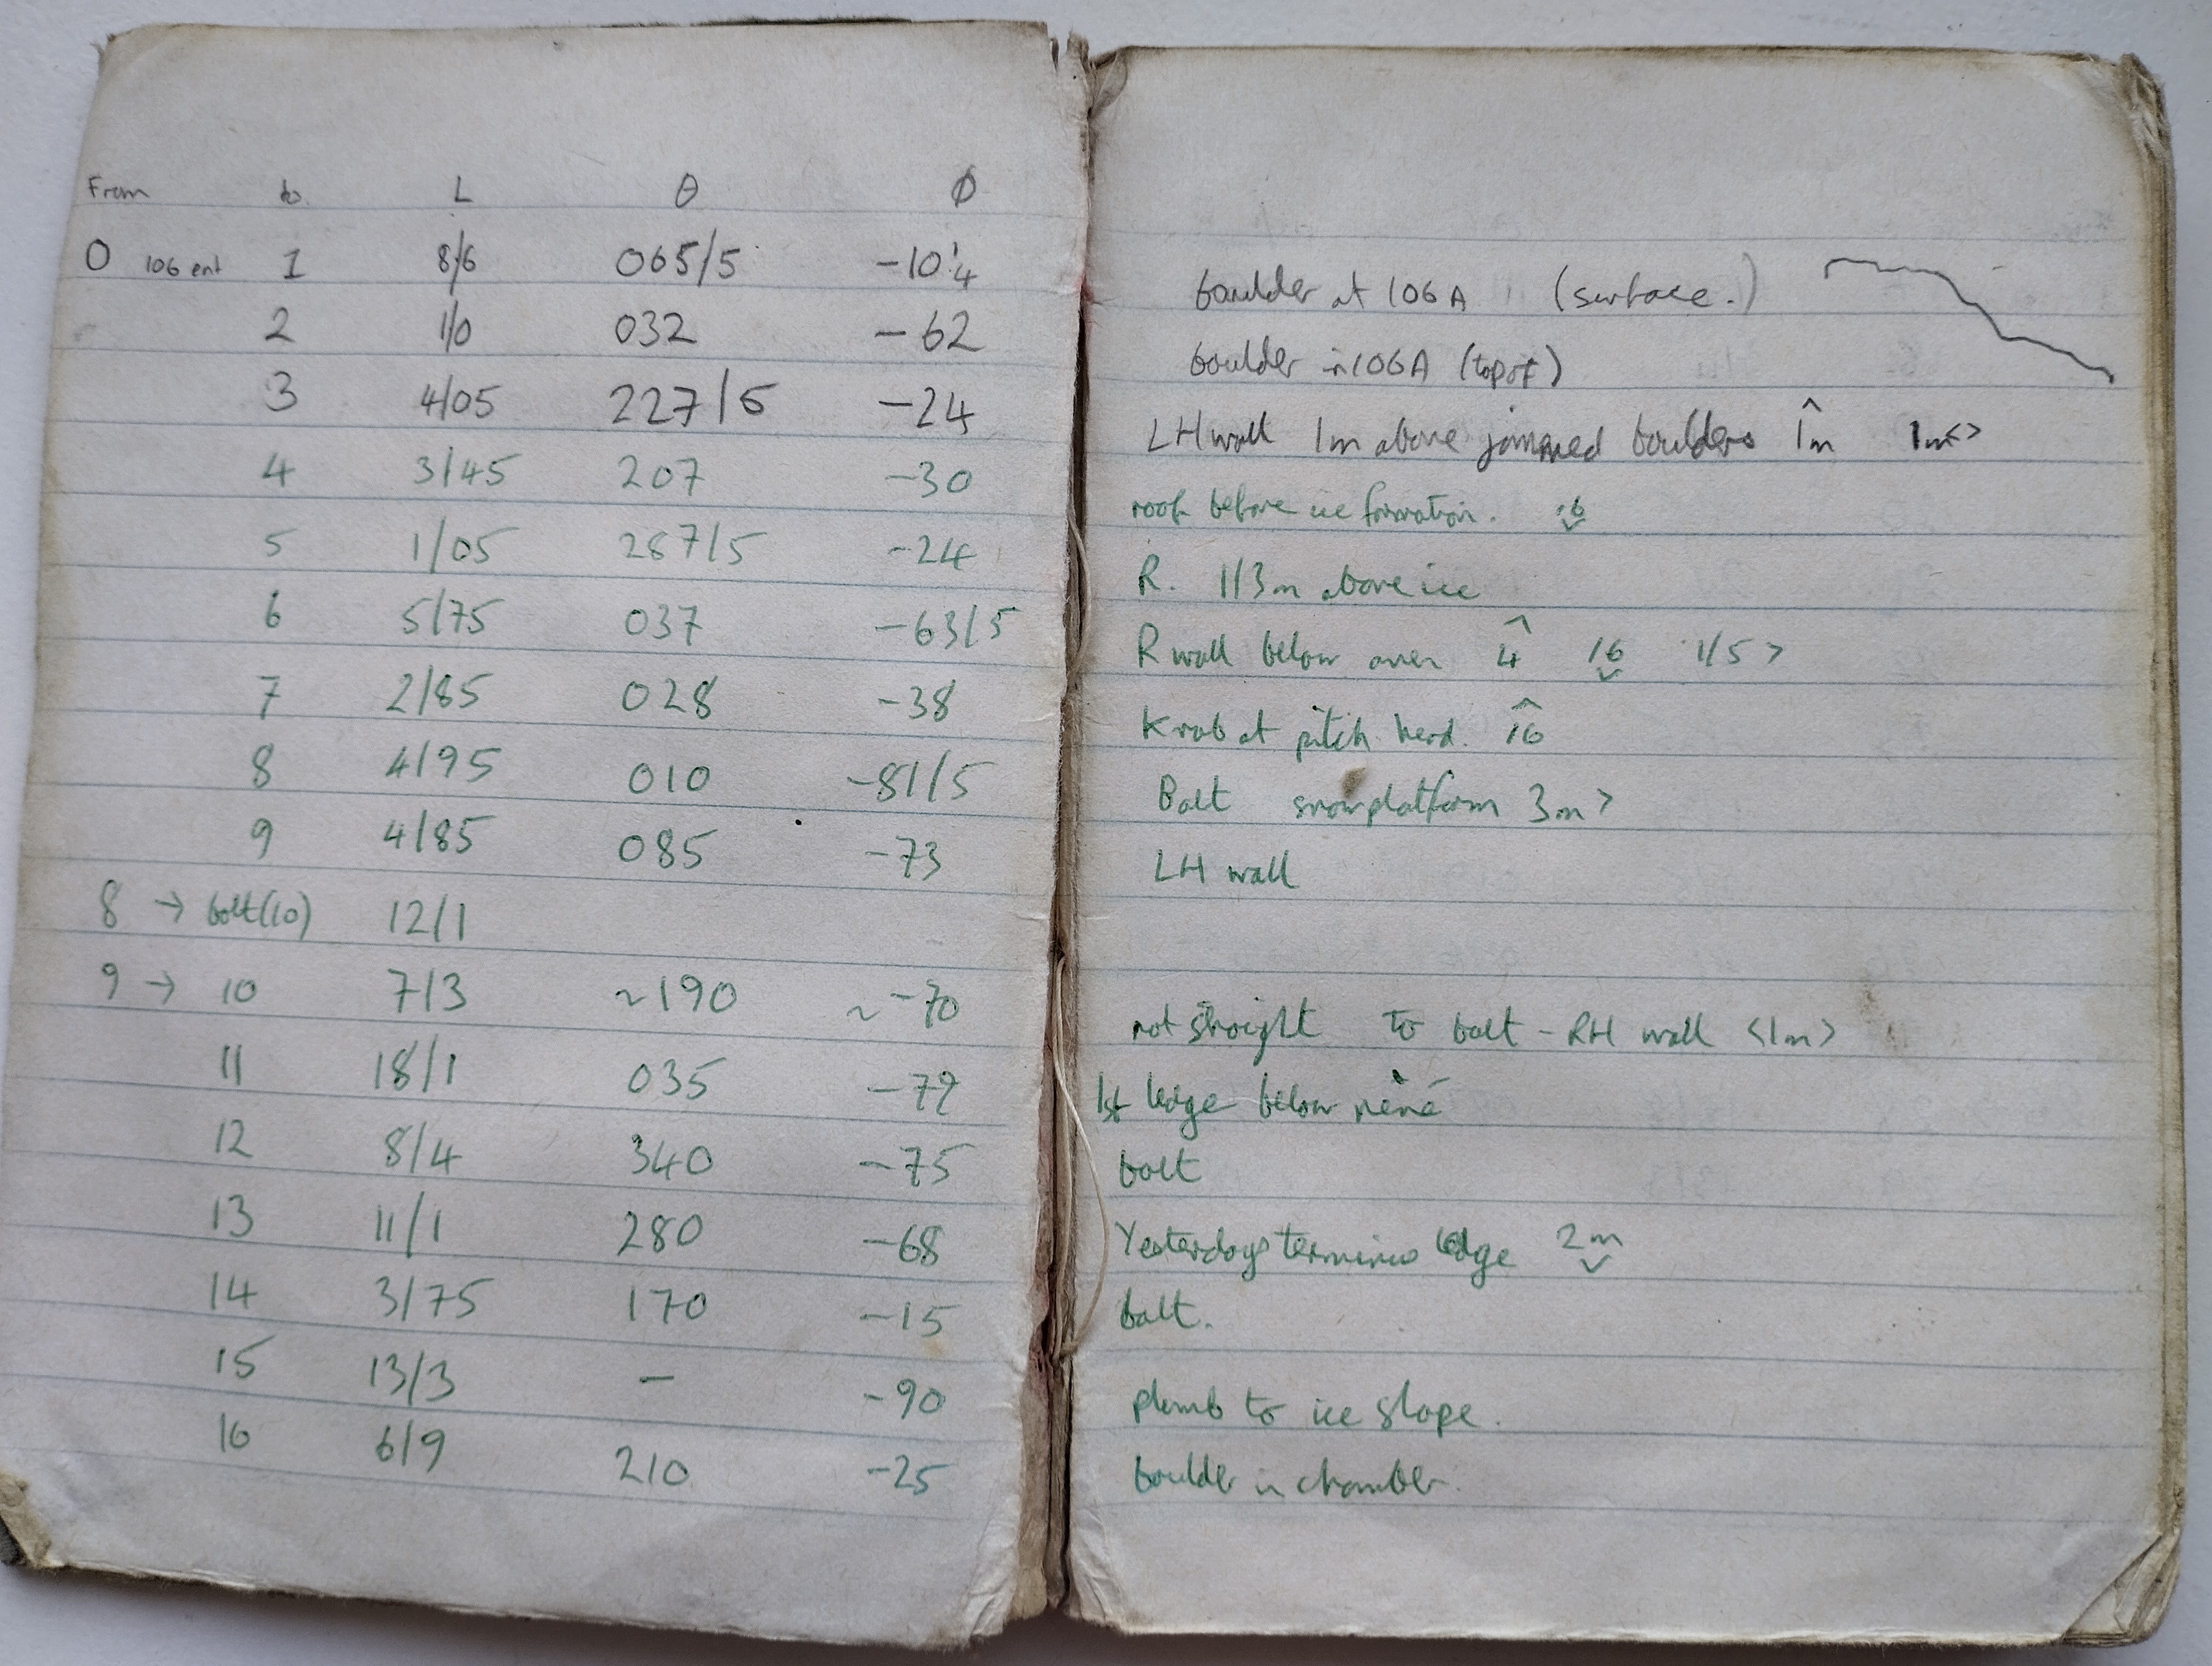 From to L θ Φ
0 106 ent 1 8/6 065/5 -10:4 boulder at 106A (surface.)
2 1/0 032 -62 boulder in 106A (top of)
3 4/05 227/5 -24 LH wall 1m above jammed boulders ^1m 1m<>
4 3/45 207 -30 roof before ice formation. ·6
5 1/05 267/5 -24 R. 1/3m above ice
6 5/75 037 -63/5 R wall below over 4 1·6 1/5 >
7 2/85 028 -38 Krab at pitch head. 16
8 4/95 010 -81/5 Bolt snow platform 3m >
9 4/85 085 -73 LH wall
8 → bolt(10) 12/1
9 → 10 7/3 ~190 ~ -70 not straight to bolt - RH wall <1m>
11 18/1 035 -79 1st ledge below névé
12 8/4 340 -75 bolt
13 11/1 280 -68 Yesterdays terminus ledge 2m
14 3/75 170 -15 bolt.
15 13/3 - -90 plumb to ice slope.
16 6/9 210 -25 boulder in chamber.